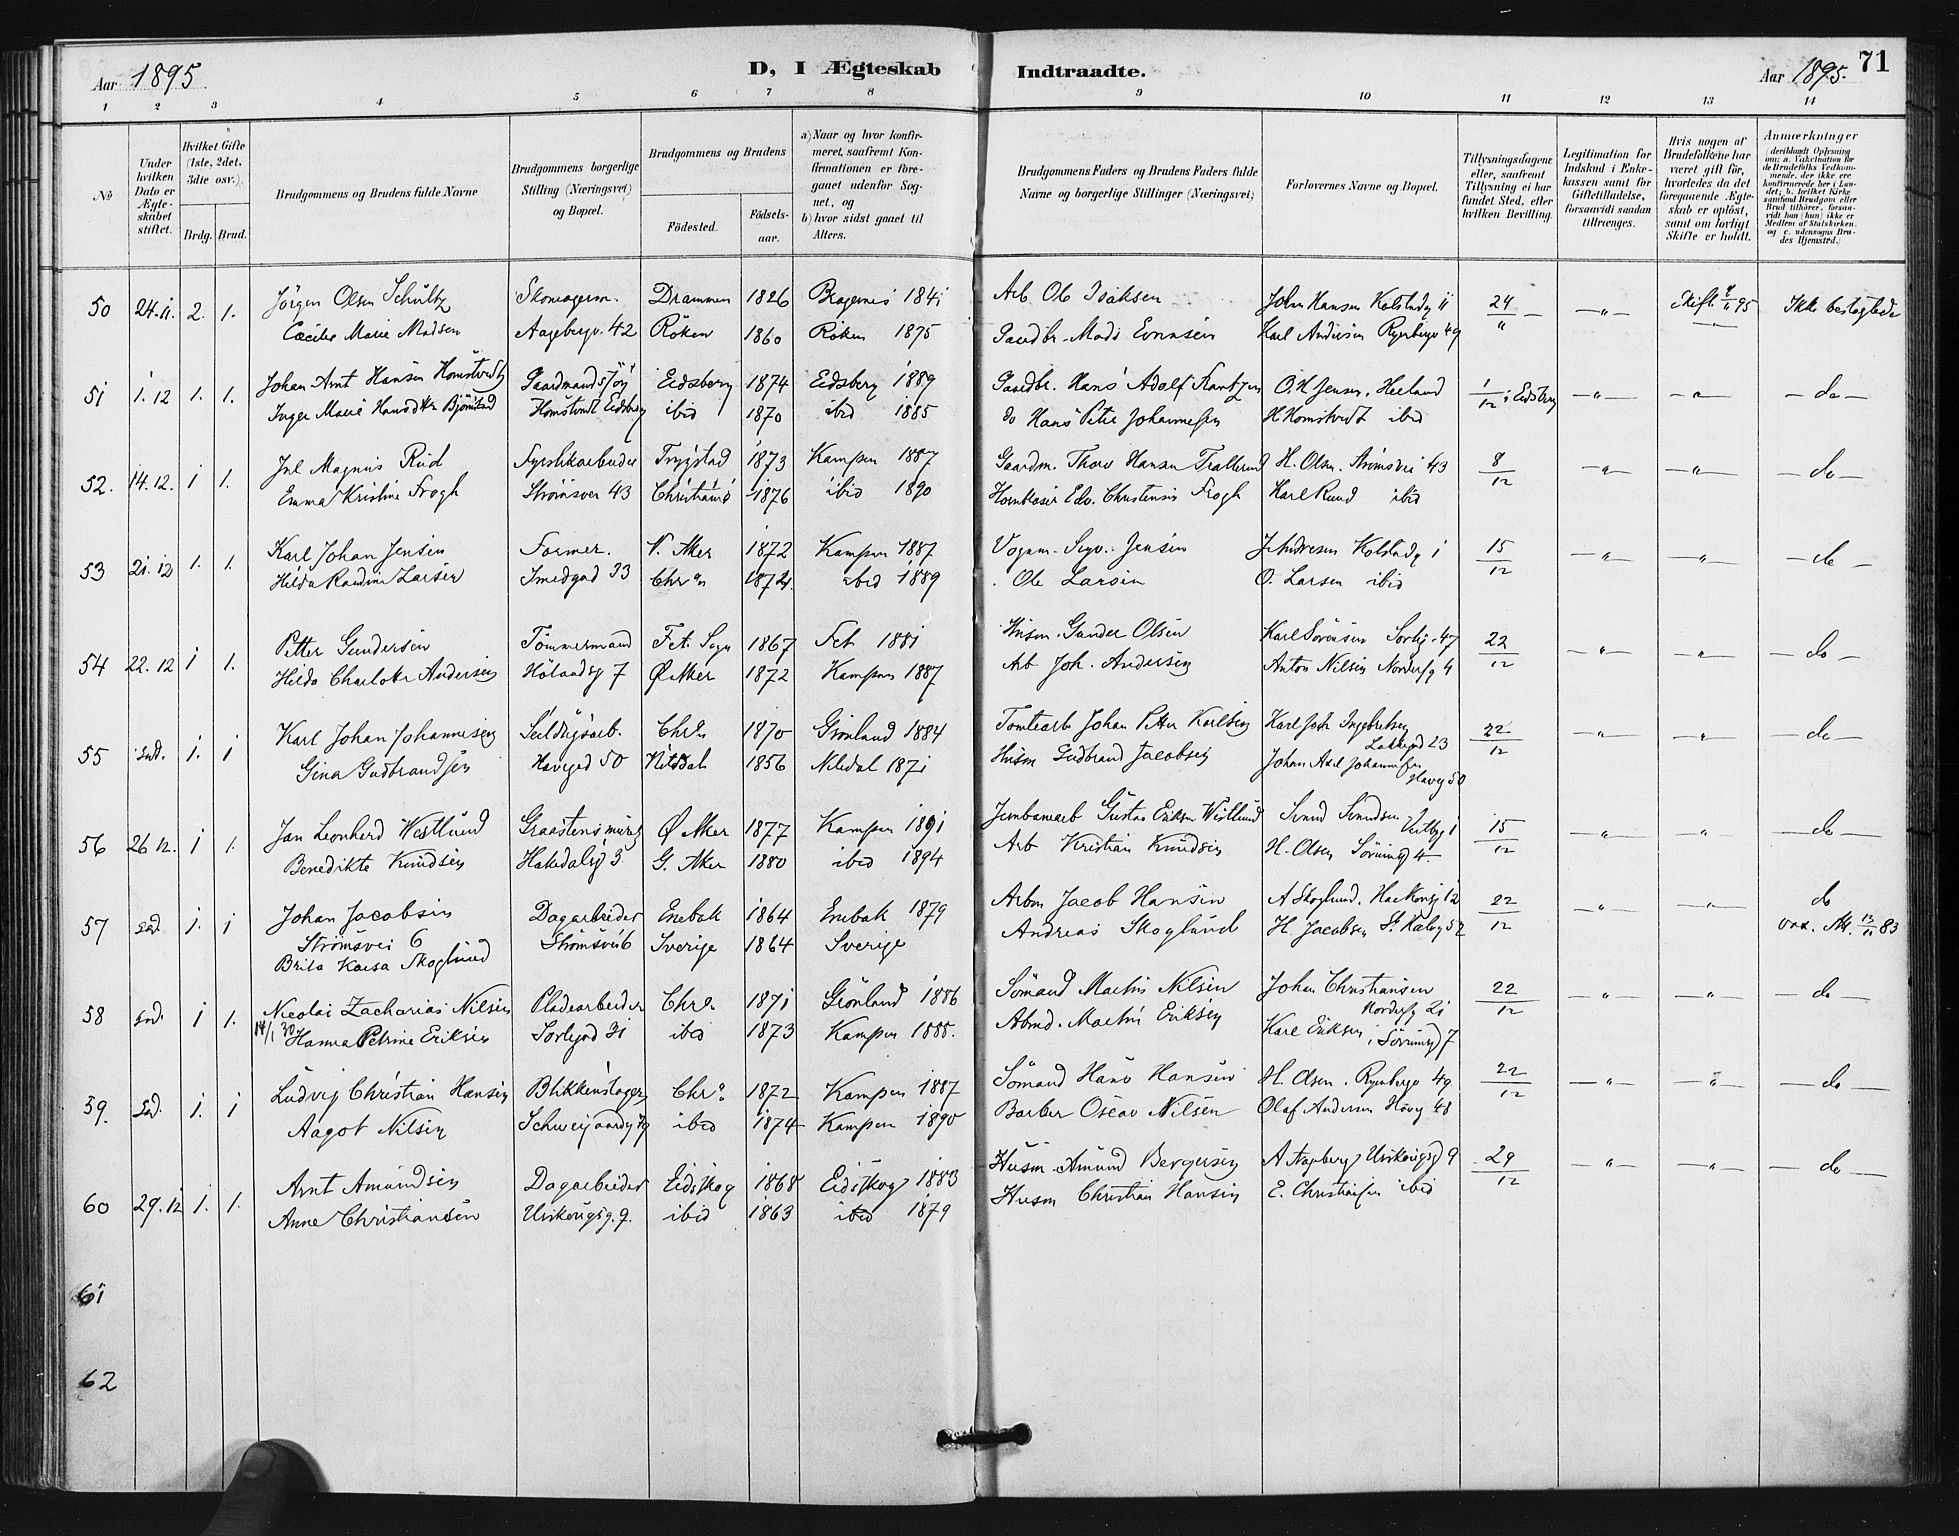 Aar 1895
D, I Ægteskab Indtraadte.
Aar 1895.
71
1 2 3 4 5 6 7 8 9 10 11 12 13 14
No
Under hvilken Dato er Ægteskabet stiftet.
Hvilket Gifte (1ste, 2det, 3die osv.).
Brdg. Brud.
Brudgommens og Brudens fulde Navne
Brudgommens borgerlige Stilling (Næringsvei) og Bopæl.
Brudgommens og Brudens
Födested.
Födselsaar.
a) Naar og hvor konfirmeret, saafremt Konfirmationen er foregaaet udenfor Sognet, og
b) hvor sidst gaaet til Alters.
Brudgommens Faders og Brudens Faders fulde Navne og borgerlige Stillinger (Næringsvei)
Forlovernes Navne og Bopæl.
Tillysningsdagene eller, saafremt Tillysning ei har fundet Sted, efter hvilken Bevilling.
Legitimation for Indskud i Enkekassen samt for Giftetilladelse, forsaavidt saadan tiltrænges.
Hvis nogen af Brudefolkene har været gift för, hvorledes da det foregaaende Ægteskab er oplöst, samt om lovligt Skifte er holdt.
Anmærkninger (deriblandt Oplysning om: a. Vakcination for de Brudefolks Vedkommende, der ikke ere konfirmerede her i Landet; b. hvilket Kirkesamfund Brudgom eller Brud tilhörer, forsaavidt han (hun) ikke er Medlem af Statskirken, og c. udensogns Brudes Hjemsted.)
50 24.11. 2. 1. Jörgen Olsen Schultz Skomagerm. Drammen 1826 Bragernes 1841 Arb. Ole Isaksen 24 Skift 95 Ikke beslægtede
Cecilie Marie Madsen Aagebergv. 42 Röken 1860 Röken 1875 Karl Andersen Ryenbergv 49
51 1.12 1. 1. Johan Arnt Hansen Homstvedt Eidsberg 1874 Eidsberg 1889 Gaardbr. Hans Adolf Frantzen O. H. Jensen, 1/12 i Eidsberg do
Inge Marie Homstvedt Eidsberg ibid 1870 ibid 1885 do Hans Petter Johannessen H Homstvedt ibid
52. 14.12. 1 1. Magnus Rud Fyrstikarbeider Trygstad 1873 Kampen 1887 Gaardm. Thorv Hansen H. Olsen. Strömsvei 43 8/12 do
Emma Kristine Frogh Strömsvei 43 Christiania 1876 ibid 1890 Edv. Christensen Frogh Karl Ruud ibid
53 21.12 1. 1. Karl Johan Jensen Former. V. Aker 1872 Kampen 1887 Vognm. Jensen J. Andresen 15/12 do
Hilda Larsen Smedgad 33 Chra 1872 ibid 1889 Ole Larsen O. Larsen ibid
54 22.12 1 1. Petter Gundersen Tömmermand Fet Sogn 1867 Fet 1881 Husm. Gunder Olsen Karl Sörensen Sorlig. 47 22/12 do
Hilda Charlotte Andersen Hölandsg 7 Ö. Aker 1872 Kampen 1887 Arb Joh. Andersen Anton Nilsen Norderhg 4
55 Sad. 1. 1 Karl Johan Johannesen Seildugsarb. Chra 1870 Grönland 1884 Tomtearb Johan Petter Karlsen Karl Joh Ingebretsen 22/12 do
Lakkegd 23
Gina Gudbrandsen Havegad 50 Nitedal 1856 Nitedal 1871 Husm Gudbrand Jacobsen Johan Axel Johannessen
Haveg 50
56 26.12. 1 1. Jan Leonhard Westlund Ö. Aker 1877 Kampen 1891 Jernbanearb Gustav Eriksen Westlund Svend Svendsen Vestbyg 1 15/12 do
Benedikte Knudsen Hakedalsg 3 G. Aker 1880 ibid 1894 Arb Kristian Knudsen H. Olsen Sörumsg 4
57 Sad 1. 1 Johan Jacobsen Dagarbeider Enebak 1864 Enebak 1879 Arbm Jacob Hansen A Skoglund. 22/12 do
Strömsvei 6 Strömsvei 6 Sverige 1864 Sverige Andreas Skoglund H. Jacobsen 83
Brita Kaisa Skoglund
58 Sad. 1 1. Nicolai Zacharias Nilsen Pladearbeider Chra. 1871 Grönland 1886 Sömand Martin Nilsen Johan Christiansen 22/12 do
Norderhg 21
14/1 30 Hanna Petrine Eriksen Sorligad 31 ibid 1873 Kampen 1888. Arbmd. Martin Eriksen Karl Eriksen, Sörumsg 7
59. Sad. 1. 1 Ludvig Christian Hansen Blikkenslager Chra. 1872 Kampen 1887 Sömand Hans Hansen H. Olsen. Ryenbergv 49. 22/12 do
Aagot Nilsen ibid 1874 Kampen 1890 Barber Oscar Nilsen Olaf Andersen Haveg 48
60 29.12 1. 1. Arnt Amundsen Dagarbeider Eidskog 1868 Eidskog 1883 Husm Amund Bergersen 29/12 do
Anne Christiansen Urskougsg. 9. ibid 1863 ibid 1879 Husm Christian Hansen E. Christiansen ibid
61
62